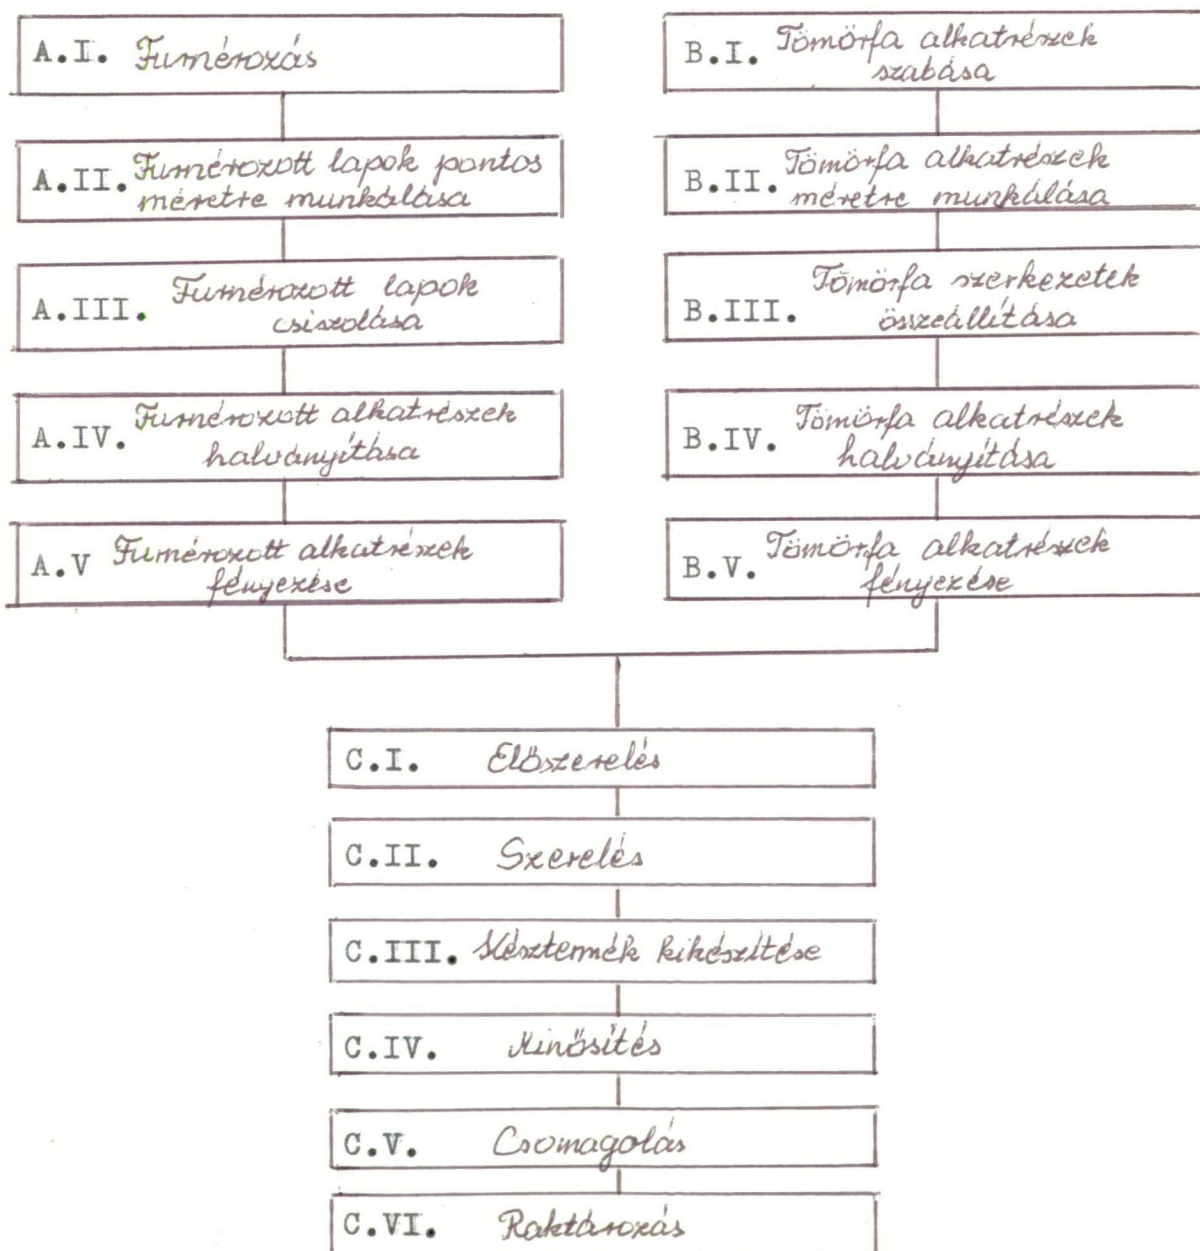 A.I. Furnérozás
A.II. Furnérozott lapok pontos
méretre munkálása
A.III. Furnérozott lapok
csiszolása
A.IV. Furnérozott alkatrészek
halványítása
A.V Furnérozott alkatrészek
fényezése
B.I. Tömörfa alkatrészek
szabása
B.II. Tömörfa alkatrészek
méretre munkálása
B.III. Tömörfa szerkezetek
összeállítása
B.IV. Tömörfa alkatrészek
halványítása
B.V. Tömörfa alkatrészek
fényezése
C.I. Előszerelés
C.II. Szerelés
C.III. Késztermék kikészítése
C.IV. Minősítés
C.V. Csomagolás
C.VI. Raktározás